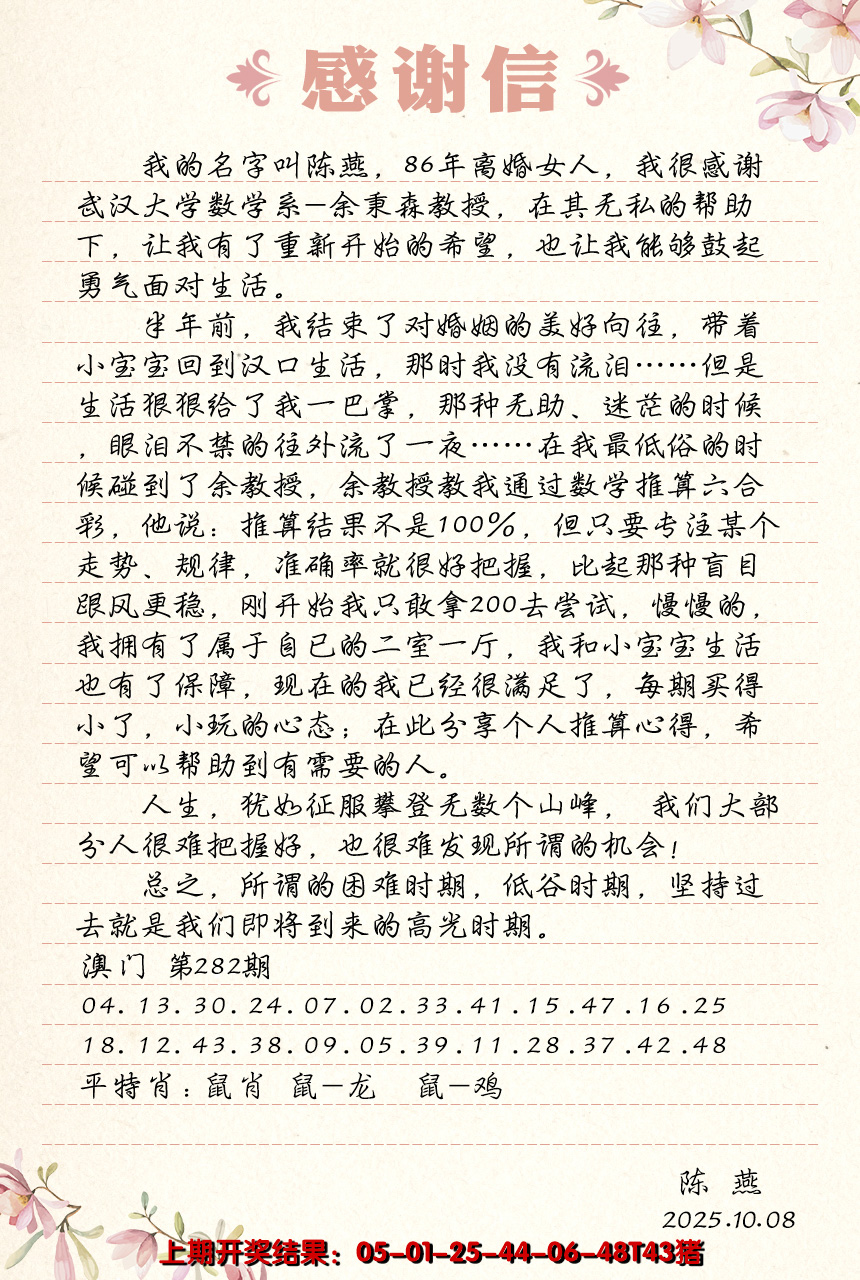 感谢信
我的名字叫陈燕，86年离婚女人，我很感谢
武汉大学数学系—余秉森教授，在其无私的帮助
下，让我有了重新开始的希望，也让我能够鼓起
勇气面对生活。
半年前，我结束了对婚姻的美好向往，带着
小宝宝回到汉口生活，那时我没有流泪……但是
生活狠狠给了我一巴掌，那种无助、迷茫的时候
，眼泪不禁的往外流了一夜……在我最低俗的时
候碰到了余教授，余教授教我通过数学推算六合
彩，他说：推算结果不是100%，但只要专注某个
走势、规律，准确率就很好把握，比起那种盲目
跟风更稳，刚开始我只敢拿200去尝试，慢慢的，
我拥有了属于自已的二室一厅，我和小宝宝生活
也有了保障，现在的我已经很满足了，每期买得
小了，小玩的心态；在此分享个人推算心得，希
望可以帮助到有需要的人。
人生，犹如征服攀登无数个山峰， 我们大部
分人很难把握好，也很难发现所谓的机会！
总之，所谓的困难时期，低谷时期，坚持过
去就是我们即将到来的高光时期。
澳门 第282期
04.13.30.24.07.02.33.41.15.47.16.25
18.12.43.38.09.05.39.11.28.37.42.48
平特肖：鼠肖 鼠—龙 鼠—鸡
陈 燕
2025.10.08
上期开奖结果：05-01-25-44-06-48T43猪